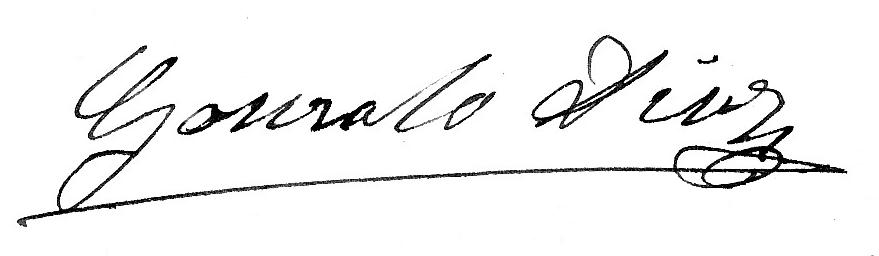 Gonzalo Díaz